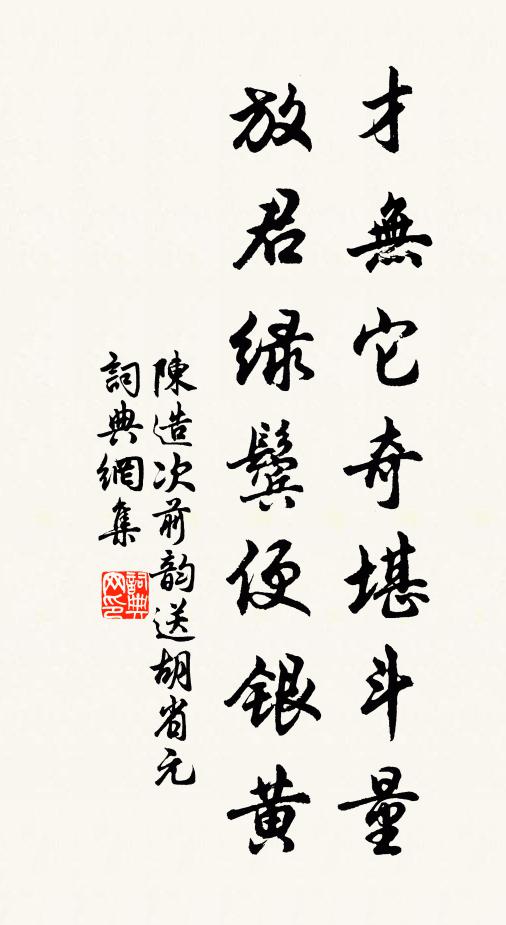 才無它奇堪斗量
放君綠鬢便銀黃
陳造次前韵送胡省元
詞典網集
詞典网印